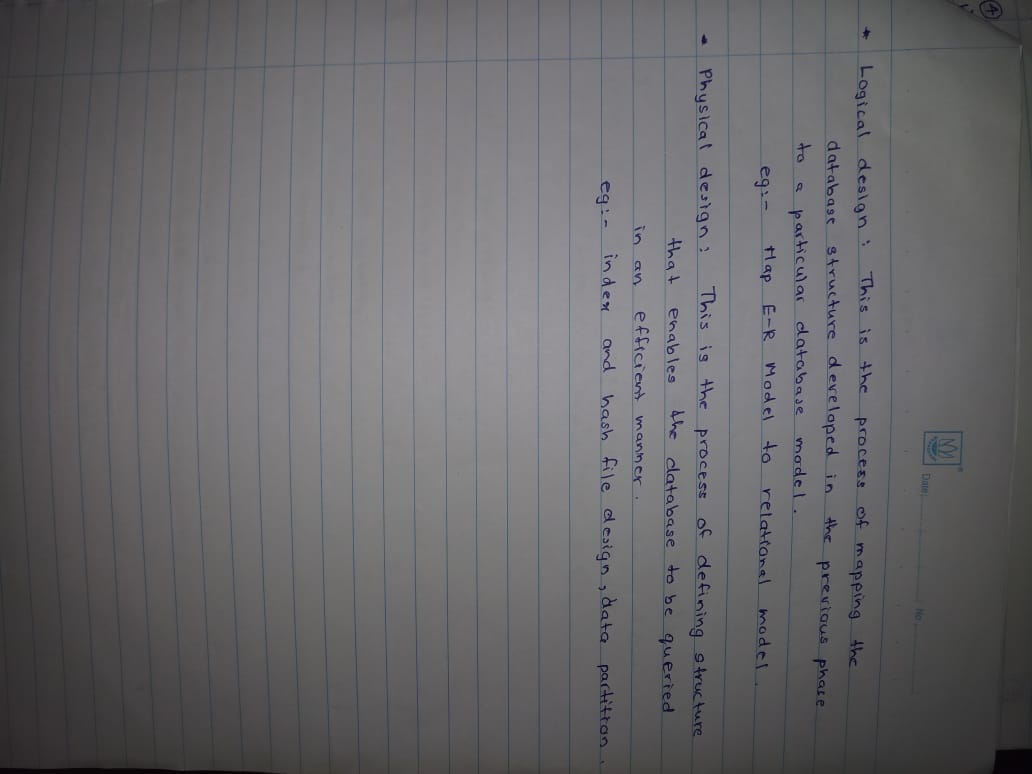 ④
Date: No.
* Logical design : This is the process of mapping the
database structure developed in the previous phase
to a particular database model.
eg:- Map E-R Model to relational model.
• Physical design : This is the process of defining structure
that enables the database to be queried
in an efficient manner.
eg:- index and hash file design, data partition.